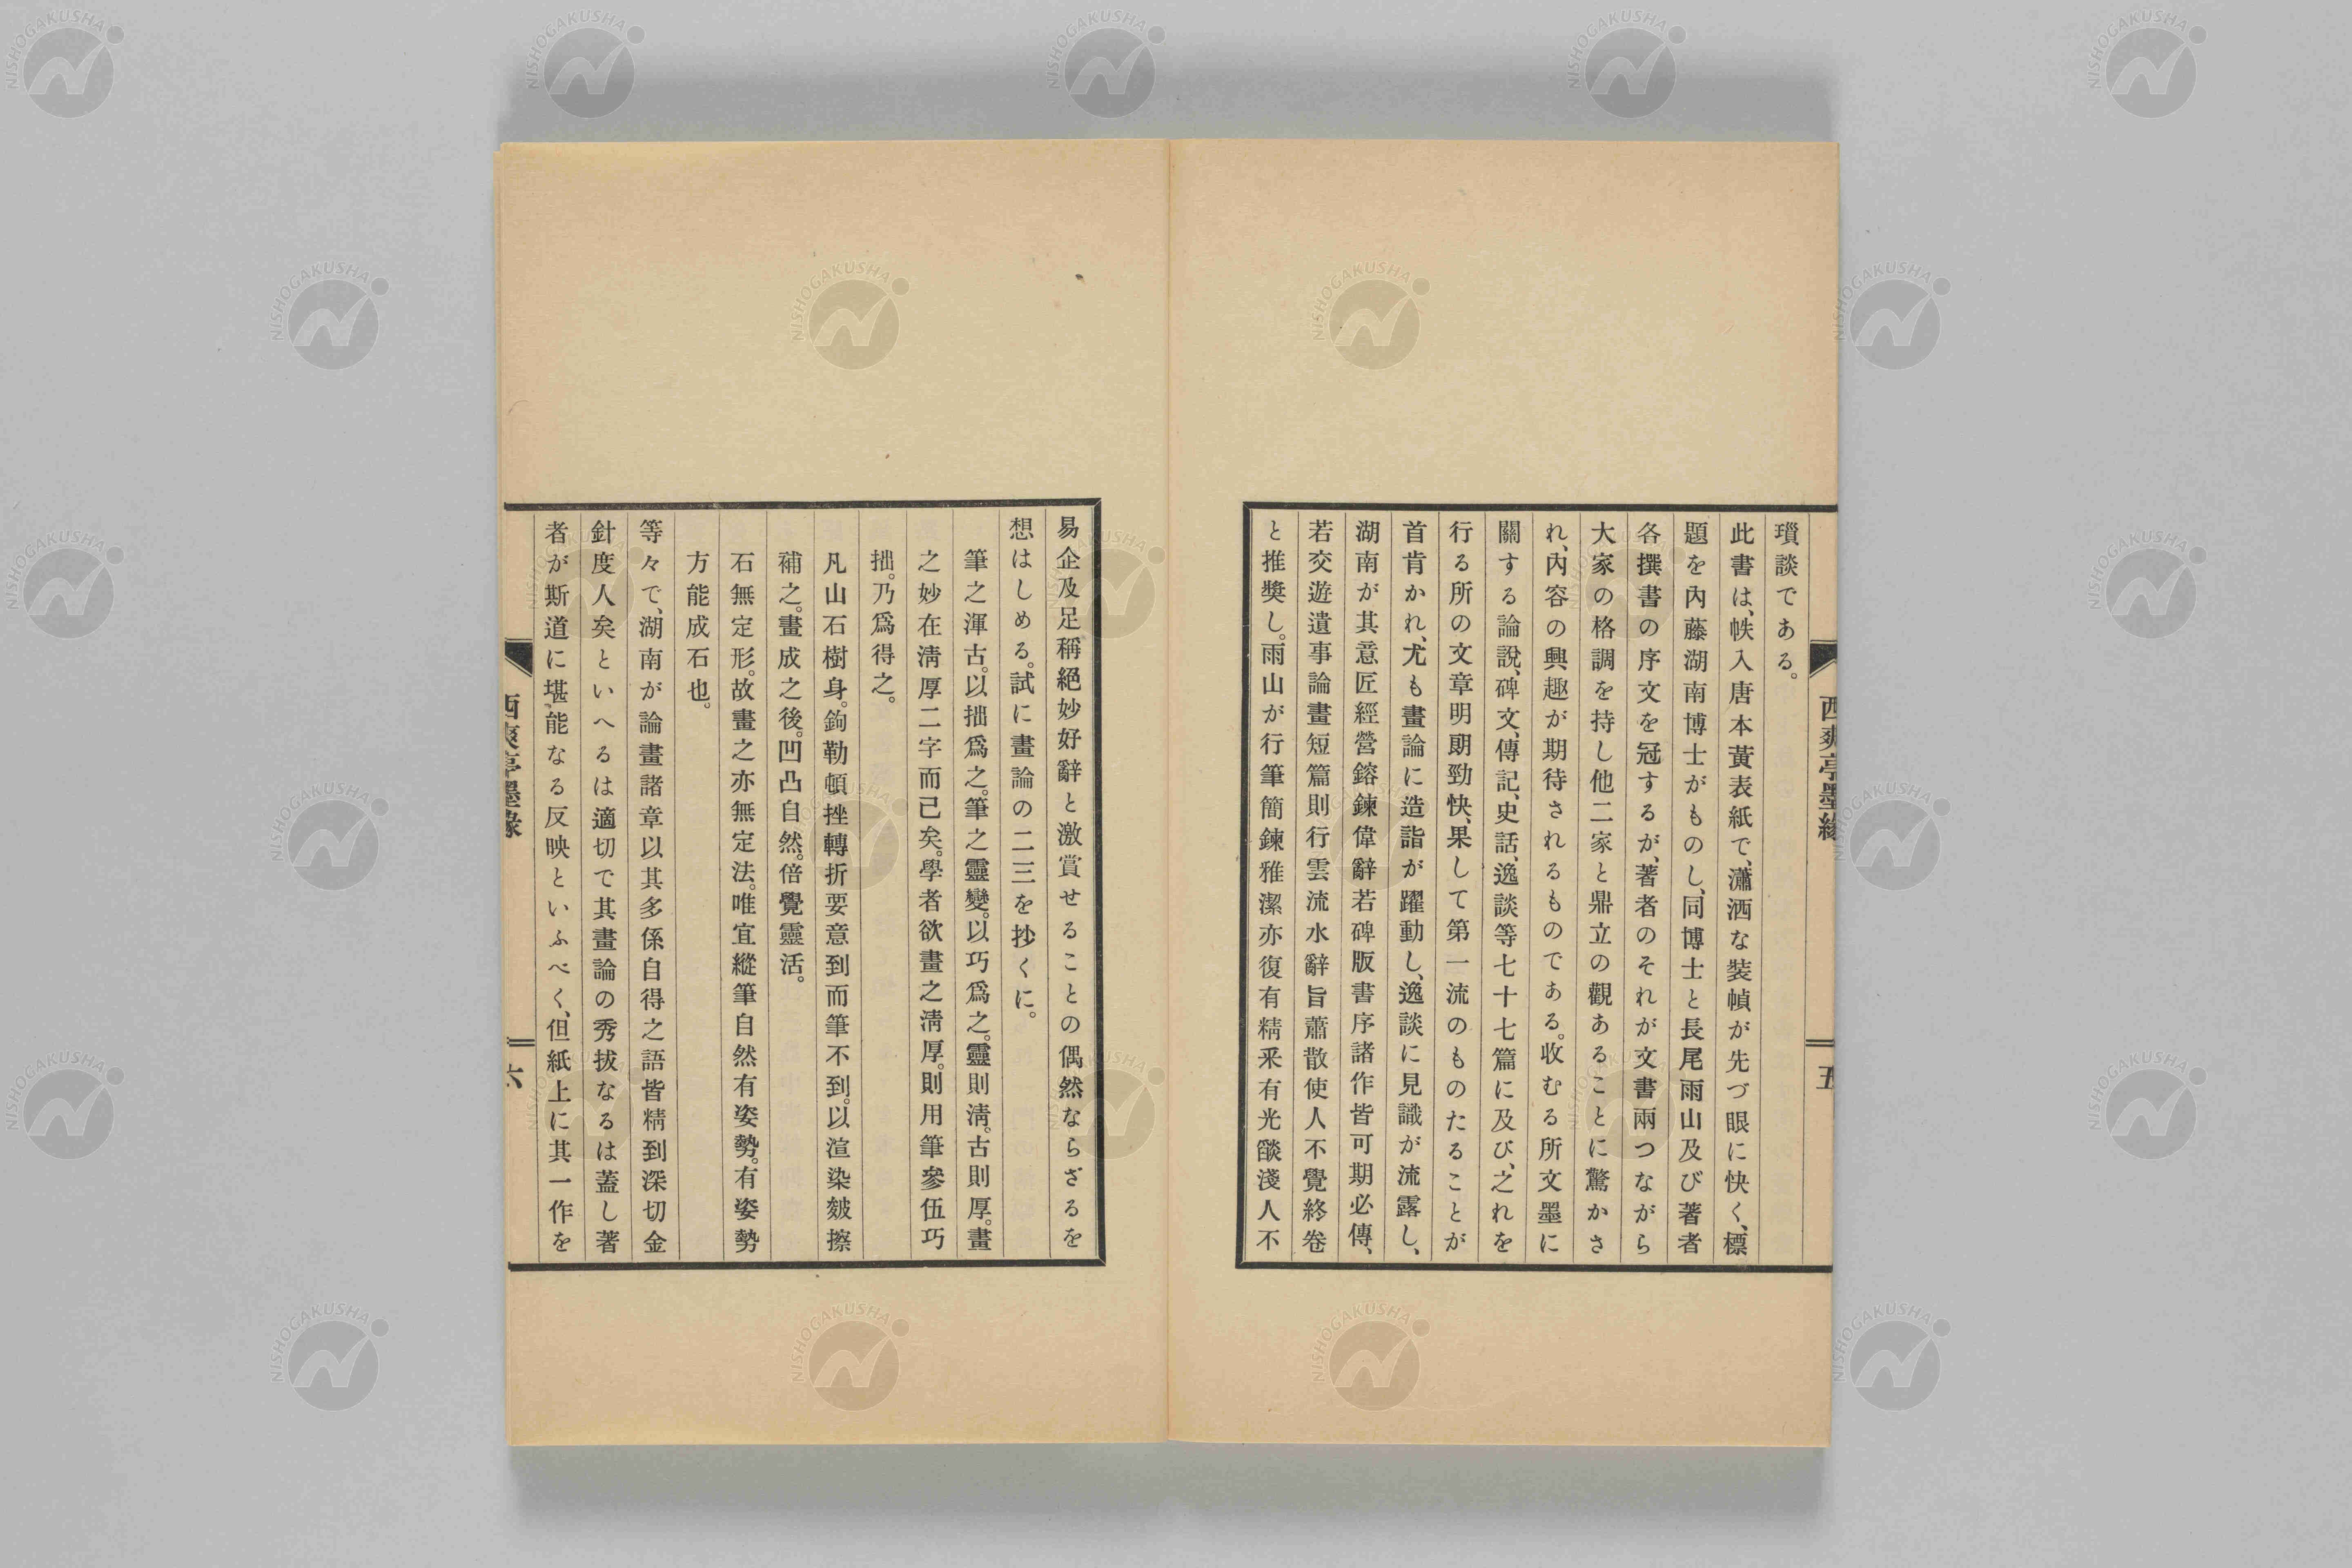 瑣談である。
此書は、帙入唐本黃表紙で、瀟洒な裝幀が先づ眼に快く、標
題を內藤湖南博士がものし、同博士と長尾雨山及び著者
各撰書の序文を冠するが、著者のそれが文書兩つながら
大家の格調を持し他二家と鼎立の觀あることに驚かさ
れ、內容の興趣が期待されるものである。收むる所文墨に
關する論說、碑文、傳記、史話、逸談等七十七篇に及び、之れを
行る所の文章明朗勁快、果して第一流のものたることが
首肯かれ、尤も畫論に造詣が躍動し、逸談に見識が流露し、
湖南が其意匠經營鎔鍊偉辭若碑版書序諸作皆可期必傳、
若交遊遺事論畫短篇則行雲流水辭旨蕭散使人不覺終卷
と推奬し。雨山が行筆簡鍊雅潔亦復有精釆有光燄淺人不
西爽亭墨緣
五
易企及足稱絕妙好辭と激賞せることの偶然ならざるを
想はしめる。試に畫論の二三を抄くに。
筆之渾古。以拙爲之。筆之靈變。以巧爲之。靈則淸。古則厚。畫
之妙在淸厚二字而已矣。學者欲畫之淸厚。則用筆參伍巧
拙。乃爲得之。
凡山石樹身。鉤勒頓挫轉折要意到而筆不到。以渲染皴擦
補之。畫成之後。凹凸自然。倍覺靈活。
石無定形。故畫之亦無定法。唯宜縱筆自然有姿勢。有姿勢
方能成石也。
等々で、湖南が論畫諸章以其多係自得之語皆精到深切金
針度人矣といへるは適切で其畫論の秀拔なるは蓋し著
者が斯道に堪能なる反映といふべく、但紙上に其一作を
西爽亭墨緣
六
NISHOGAKUSHA